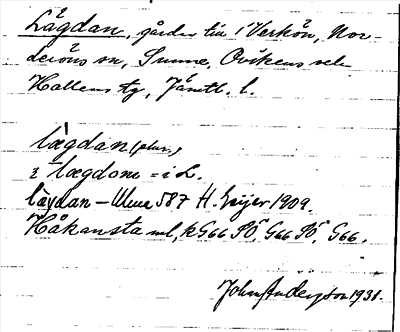 Lågdan, gårdar till 1 Verkön, Nor-
deröns sn, Sunne, Ovikens och
Hallens tg, Jämtl. l.
lægdan (plur.)
i lægdom = i L.
lågdan – Ulma 587 H. Geijer 1909.
Håkansta ml, k G66 SÖ, G66 SÖ, G66.
John Andersson 1931.